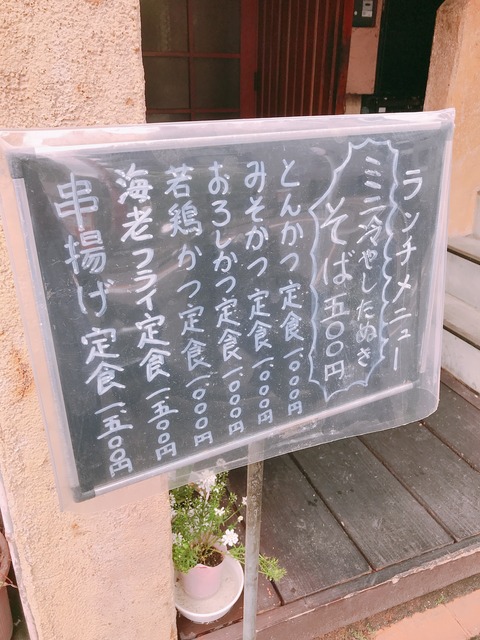 ランチメニュー
ミニ冷やしたぬき
そば五〇〇円
とんかつ定食一、〇〇〇円
みそかつ定食一、〇〇〇円
おろしかつ定食一、〇〇〇円
若鶏かつ定食一、〇〇〇円
海老フライ定食一、五〇〇円
串揚げ定食一、五〇〇円